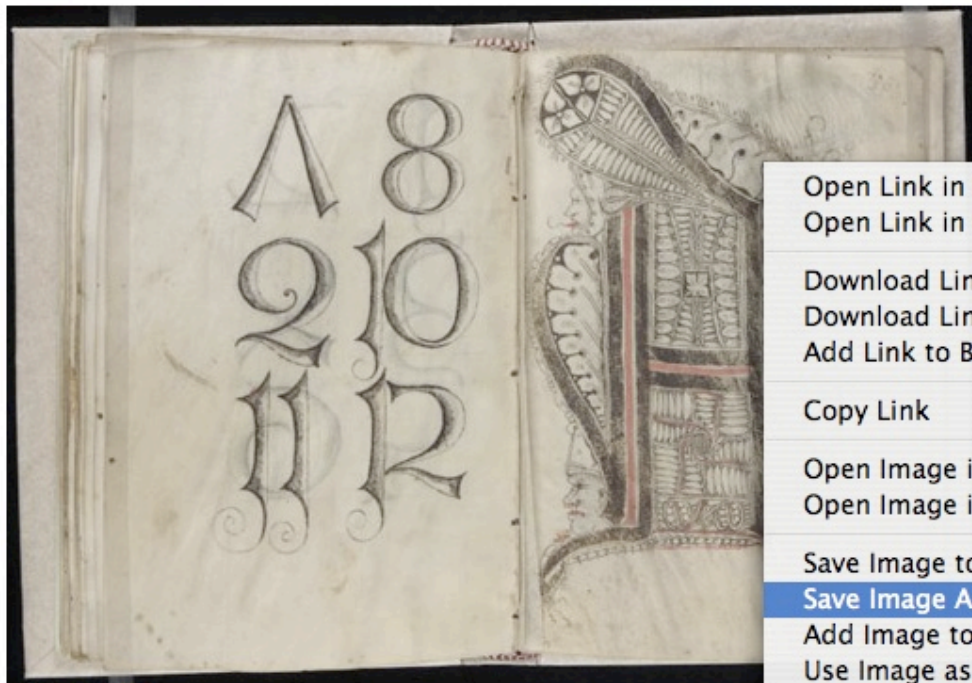 Λ 8
2 10
11 12
Open Link in
Open Link in
Download Lin
Download Lin
Add Link to B
Copy Link
Open Image i
Open Image i
Save Image to
Save Image A
Add Image to
Use Image as